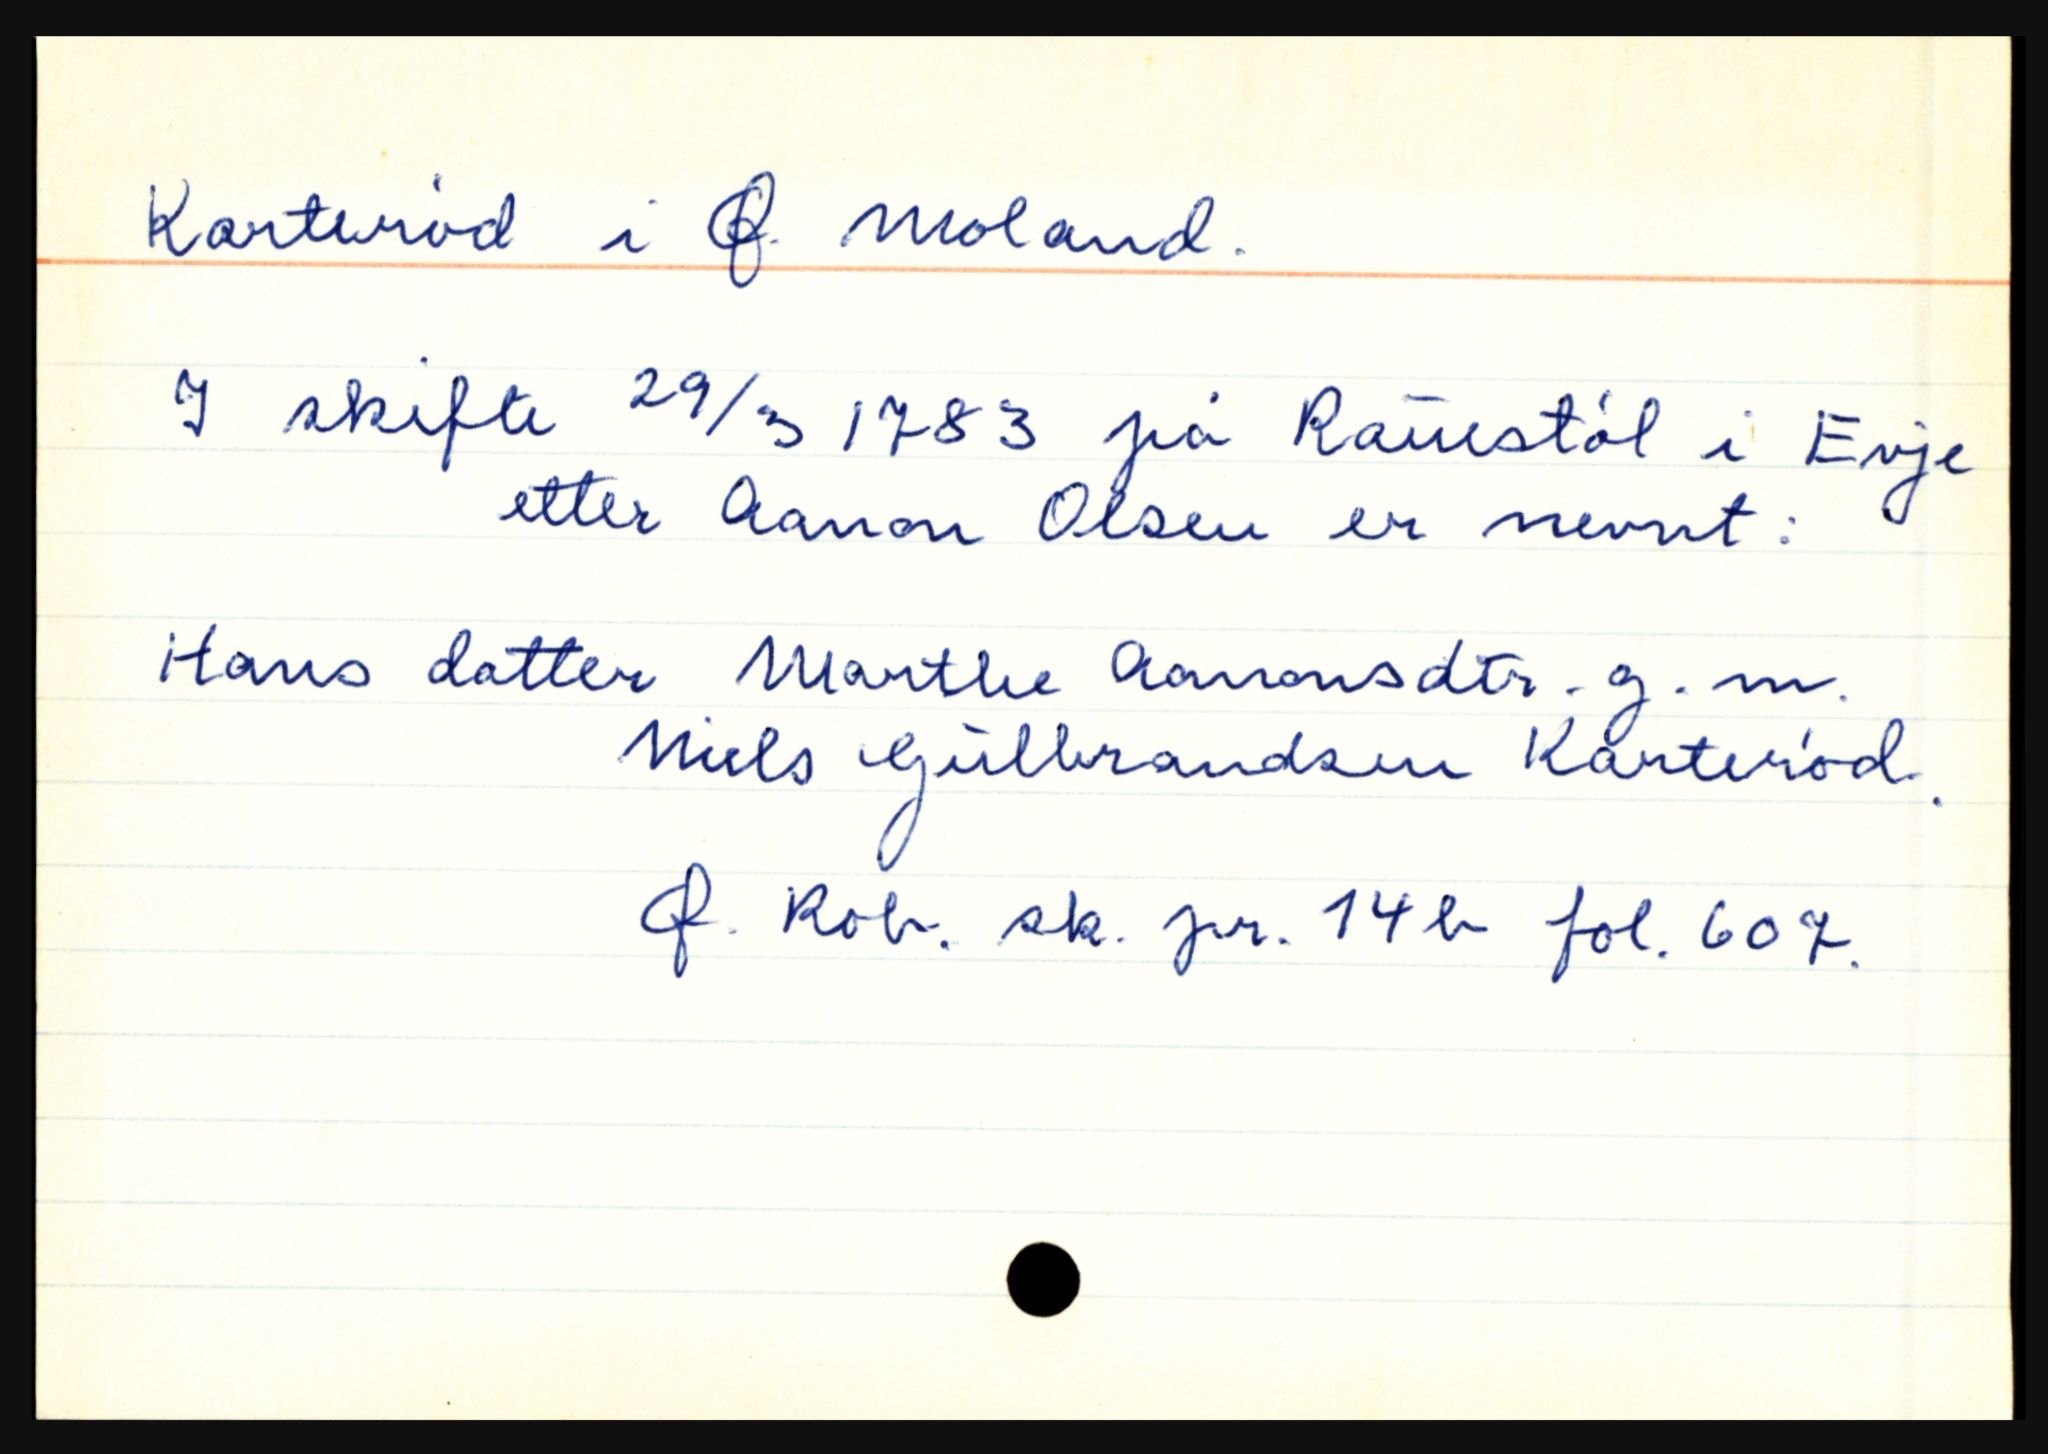 Karterød i Ø. Moland.
I skifte 29/3 1783 på Rauestøl i Evje
etter Aanon Olsen er nevnt:
Hans datter Marthe Aanonsdtr. g. m.
Niels Gulbrandsen Karterød.
Ø. Rob. sk. pr. 14 b fol. 607.